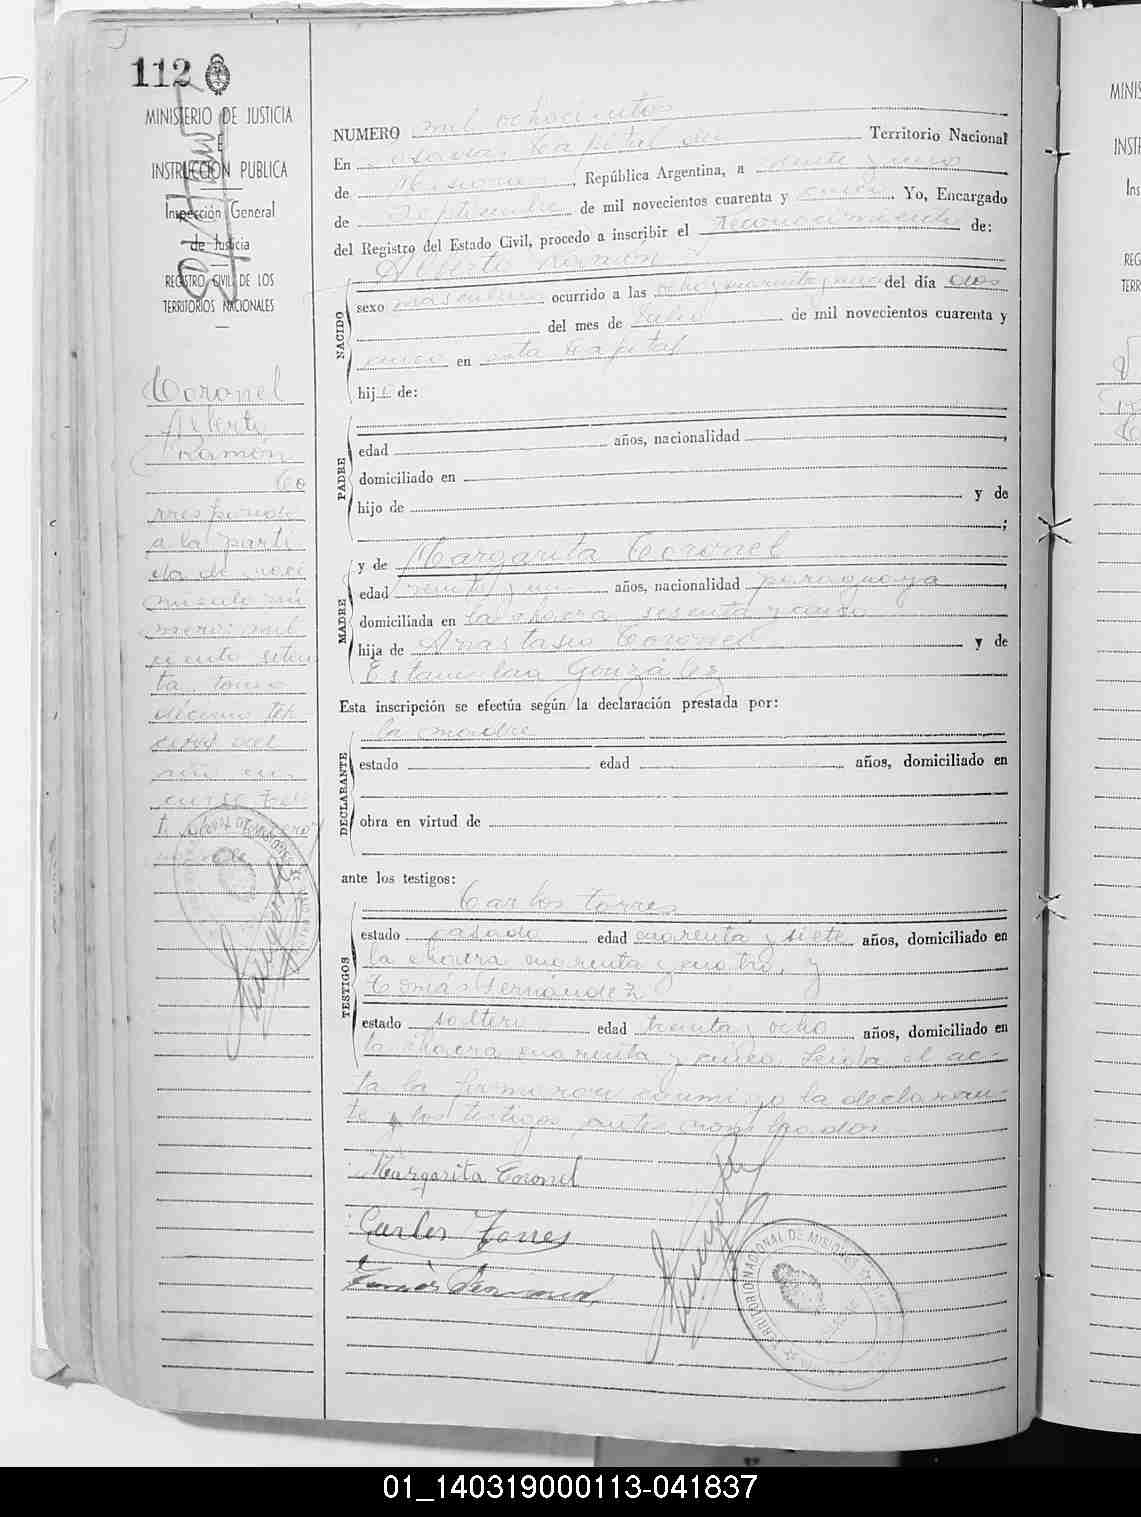 112
MINISTERIO DE JUSTICIA
E
INSTRUCCIÓN PUBLICA
Inspección General
de Justicia
REGISTRO CIVIL DE LOS
TERRITORIOS NACIONALES
Coronel
Alberto
Ramón
Co
rresponde
a la parti
da de naci
miento nú
mero: mil
ciento seten
ta, tomo
décimo ter
cero del
año en
curso
NUMERO mil ochocientos
En Posadas Capital del Territorio Nacional
de Misiones, República Argentina, a veinte y uno
de Septiembre de mil novecientos cuarenta y cinco. Yo, Encargado
del Registro del Estado Civil, procedo a inscribir el Reconocimiento de:
Alberto Ramón
NACIDO
sexo masculino ocurrido a las ocho y cuarenta y cinco del día dos
del mes de Julio de mil novecientos cuarenta y
cinco en esta Capital
hijo de:
PADRE
edad años, nacionalidad ,
domiciliado en
hijo de y de
;
MADRE
y de Margarita Coronel
edad veinte y un años, nacionalidad paraguaya,
domiciliada en la chacra sesenta y cinco
hija de Anastasio Coronel y de
Estanislaa González
Esta inscripción se efectúa según la declaración prestada por:
la madre
DECLARANTE
estado edad años, domiciliado en
obra en virtud de
ante los testigos:
TESTIGOS
Carlos Torres
estado casado edad cuarenta y siete años, domiciliado en
la chacra cuarenta y cuatro, y
Tomás Fernández
estado soltero edad treinta y ocho años, domiciliado en
la chacra cuarenta y cinco. Leída el ac-
ta la firmaron conmigo la declaran-
te y los testigos antes nombrados
Margarita Coronel
Carlos Torres
01_140319000113-041837